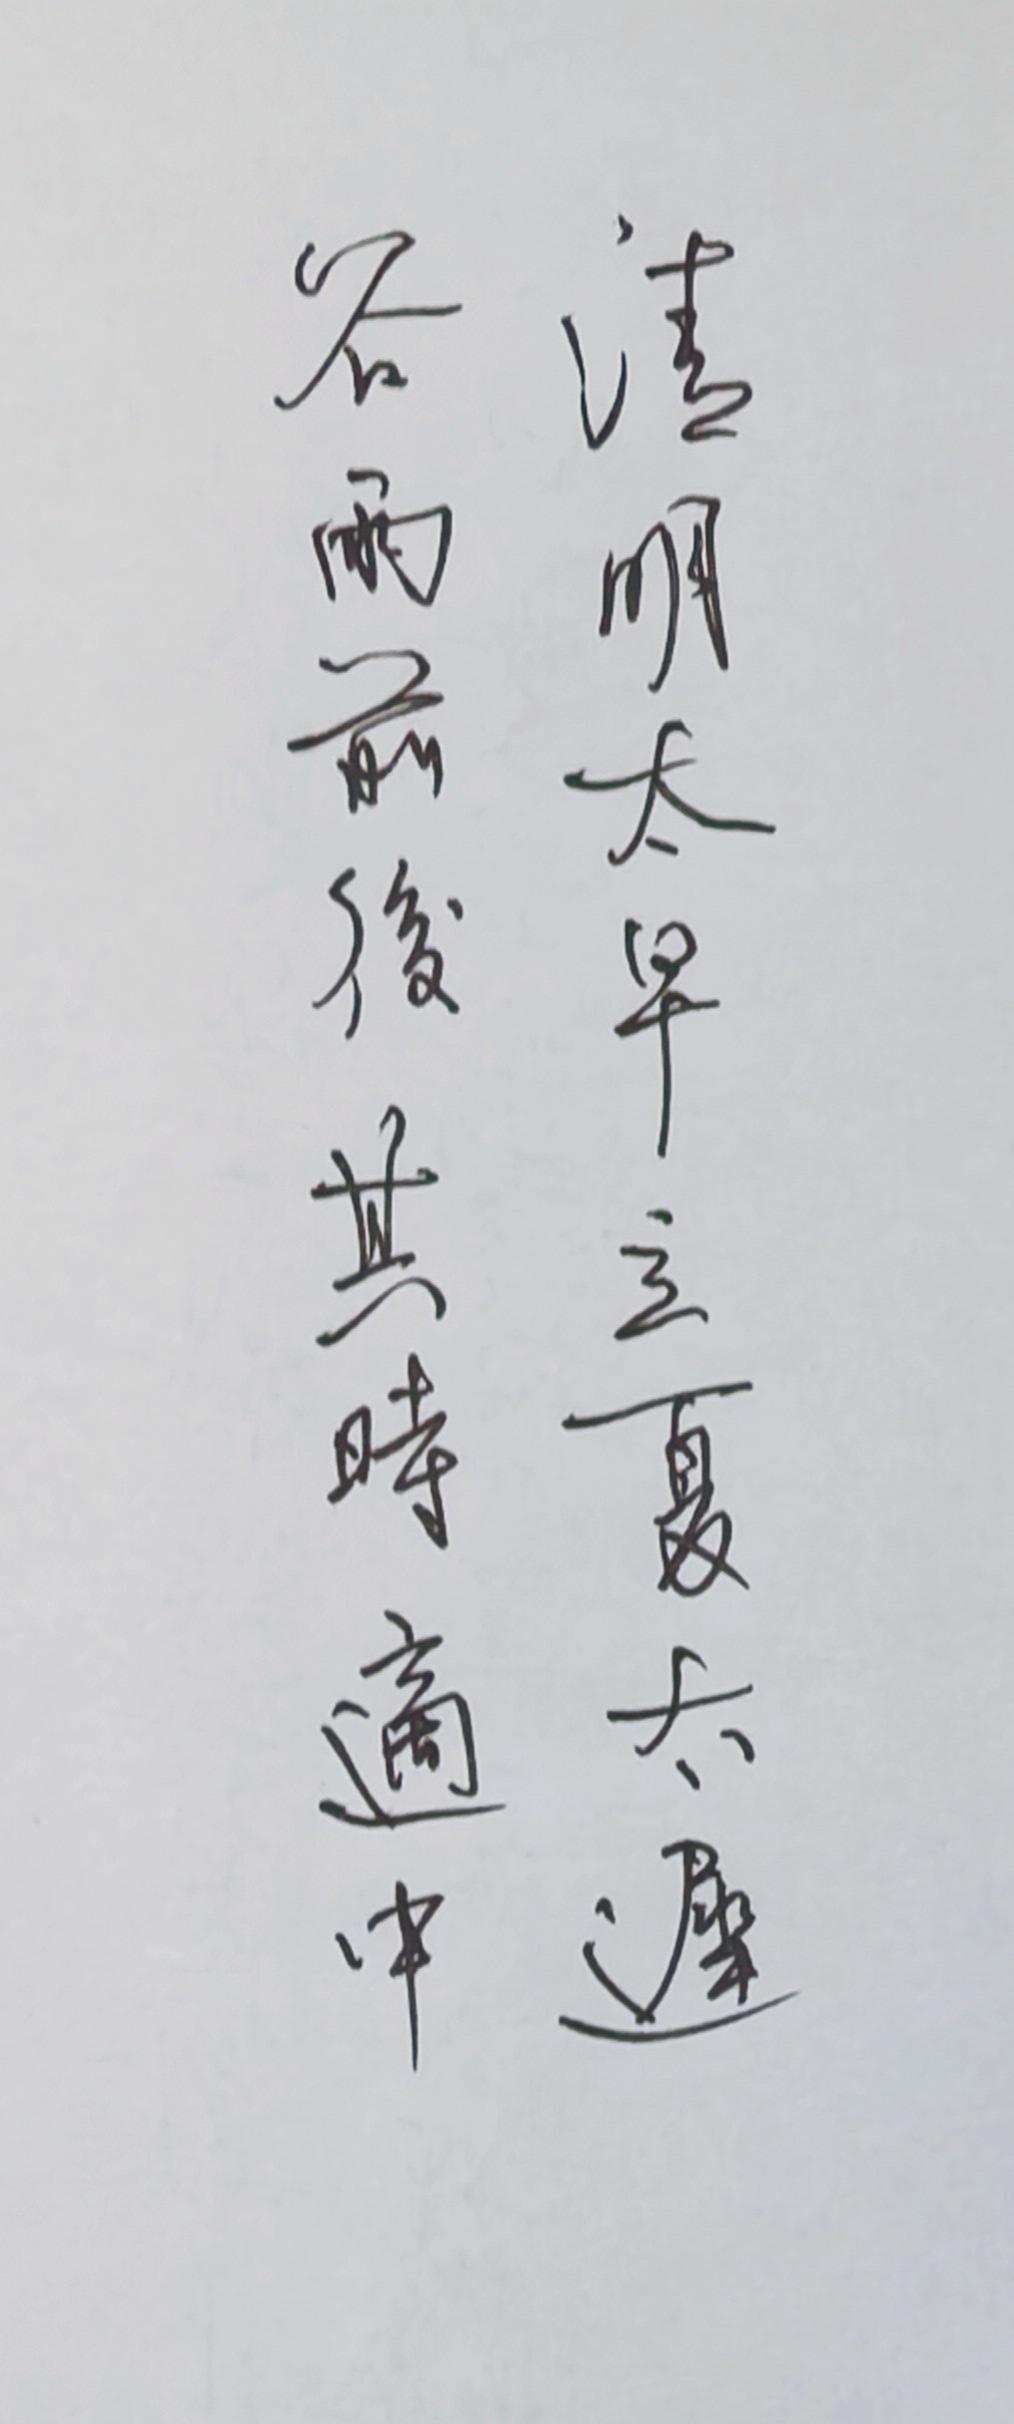 清明太早立夏太遲
谷雨前後其時適中